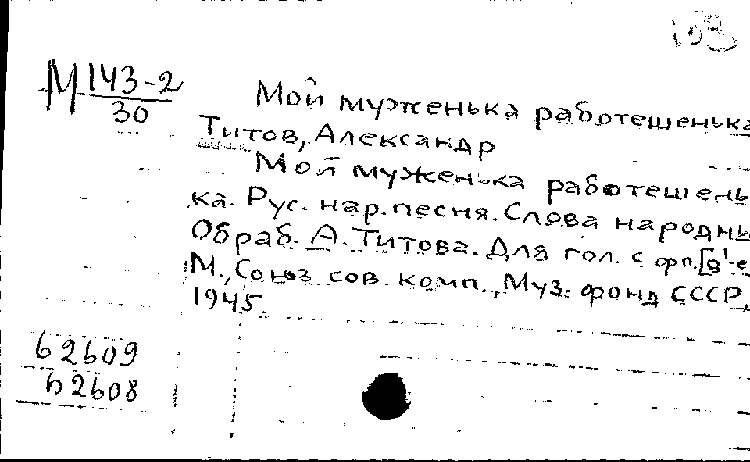 М 143-2
30
Мой муженька работешенька
Титов, Александр
Мой муженька работешень
ка. Рус. нар. песня. Слова народны
Обраб. А. Титова. Для гол. с фп.
М., Союз сов. комп., Муз. фонд СССР,
1945.
62609
62608